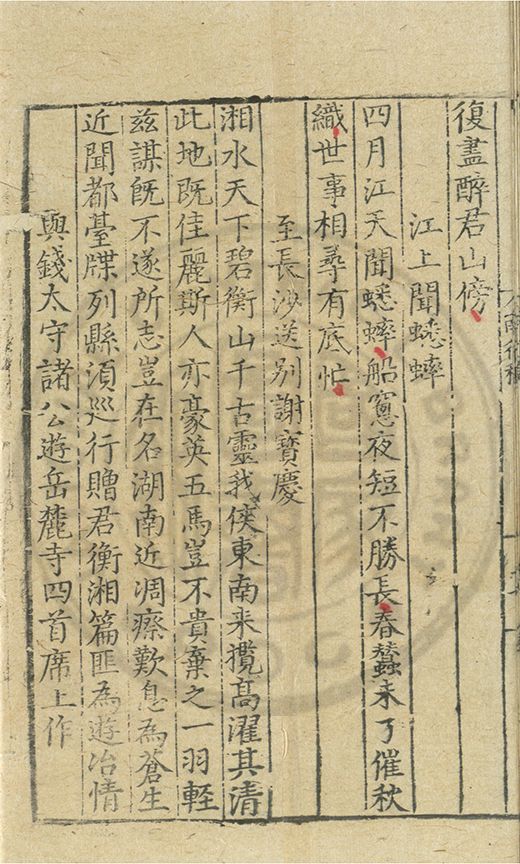 復盡醉君山傍
江上聞蟋蟀
四月江天聞蟋蟀船窻夜短不勝長春蠶未了催秋
織世事相尋有底忙
至長沙送别謝寳慶
湘水天下碧衡山千古靈我侯東南来攬髙濯其清
此地既佳麗斯人亦豪英五馬豈不貴棄之一羽輕
兹謀旣不遂所志豈在名湖南近凋瘵歎息為蒼生
近聞都臺牒列縣須廵行贈君衡湘篇匪為遊冶情
與錢太守諸公遊岳麓寺四首席上作